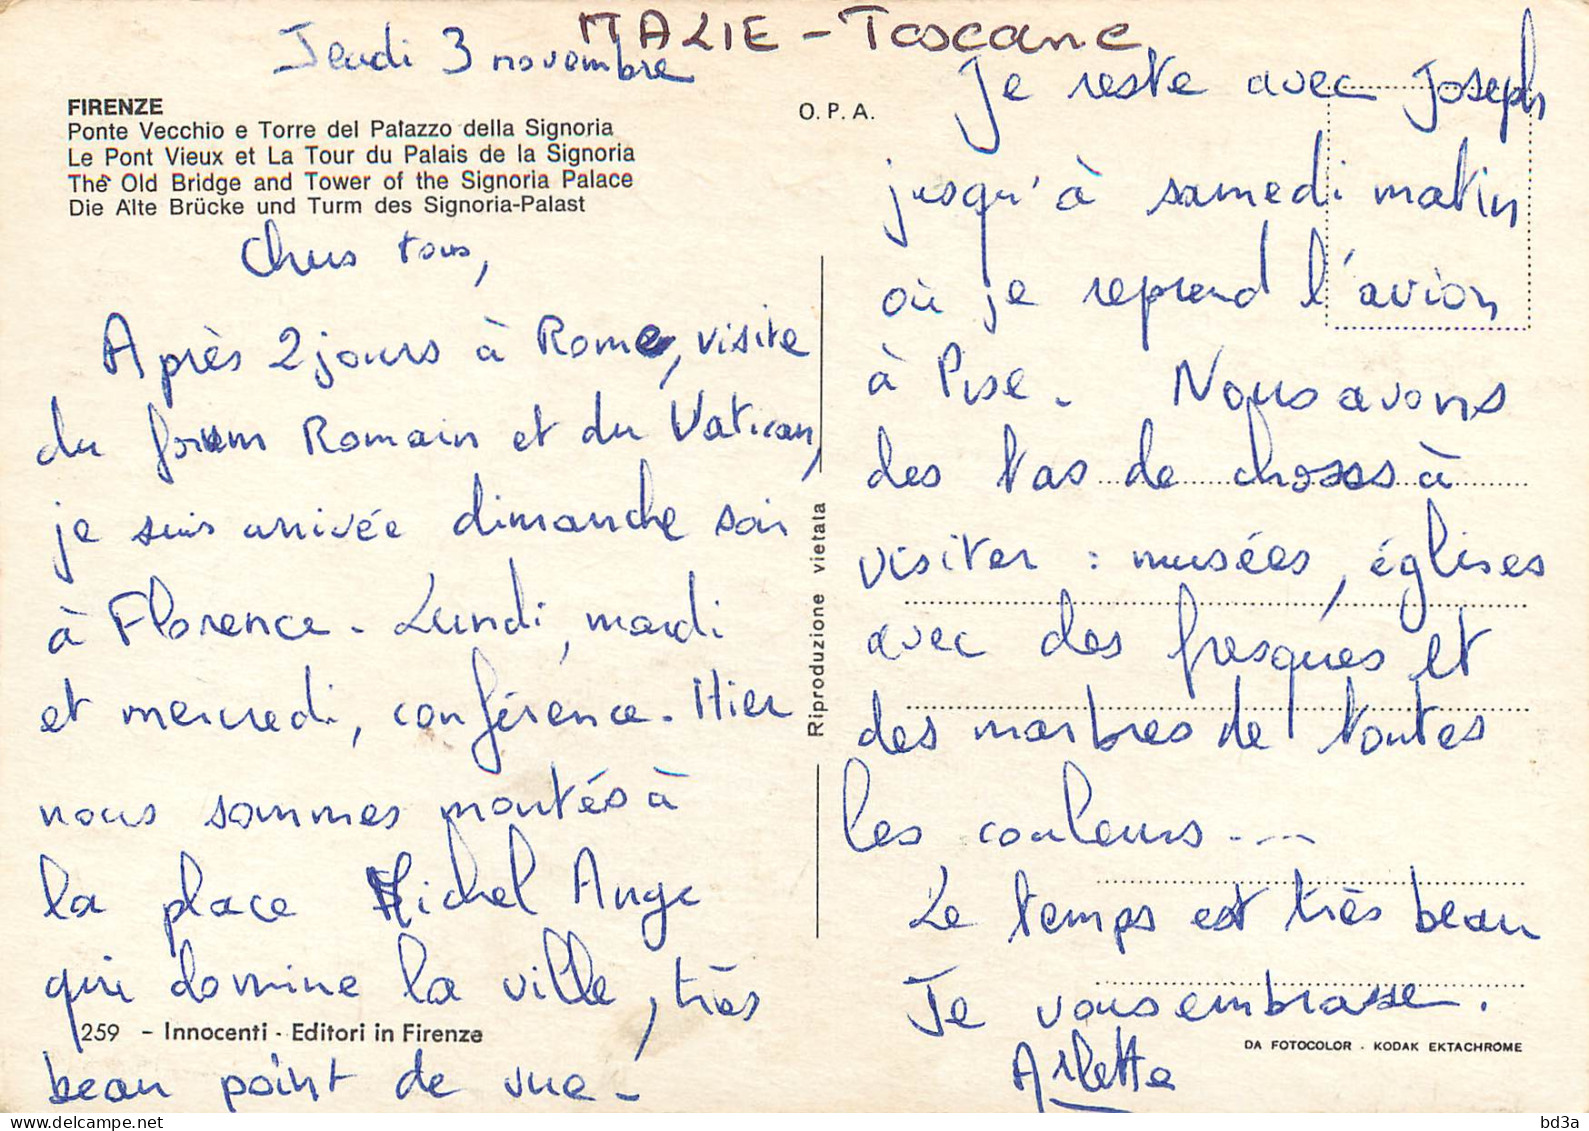 ITALIE - Toscane
Jeudi 3 novembre
FIRENZE
Ponte Vecchio e Torre del Palazzo della Signoria
Le Pont Vieux et La Tour du Palais de la Signoria
The Old Bridge and Tower of the Signoria Palace
Die Alte Brücke und Turm des Signoria-Palast
O. P. A.
Chers tous,
Après 2 jours à Rome, visite
du forum Romain et du Vatican,
je suis arrivée dimanche soir
à Florence. Lundi, mardi
et mercredi, conférence. Hier
nous sommes montés à
la place Michel Ange
qui domine la ville, très
259 - Innocenti - Editori in Firenze
beau point de vue.
Riproduzione vietata
Je reste avec Joseph
jusqu'à samedi matin
où je reprend l'avion
à Pise. Nous avons
des tas de choses à
visiter : musées, églises
avec des fresques et
des marbres de toutes
les couleurs ...
Le temps est très beau
Je vous embrasse.
DA FOTOCOLOR - KODAK EKTACHROME
Arlette
bd3a